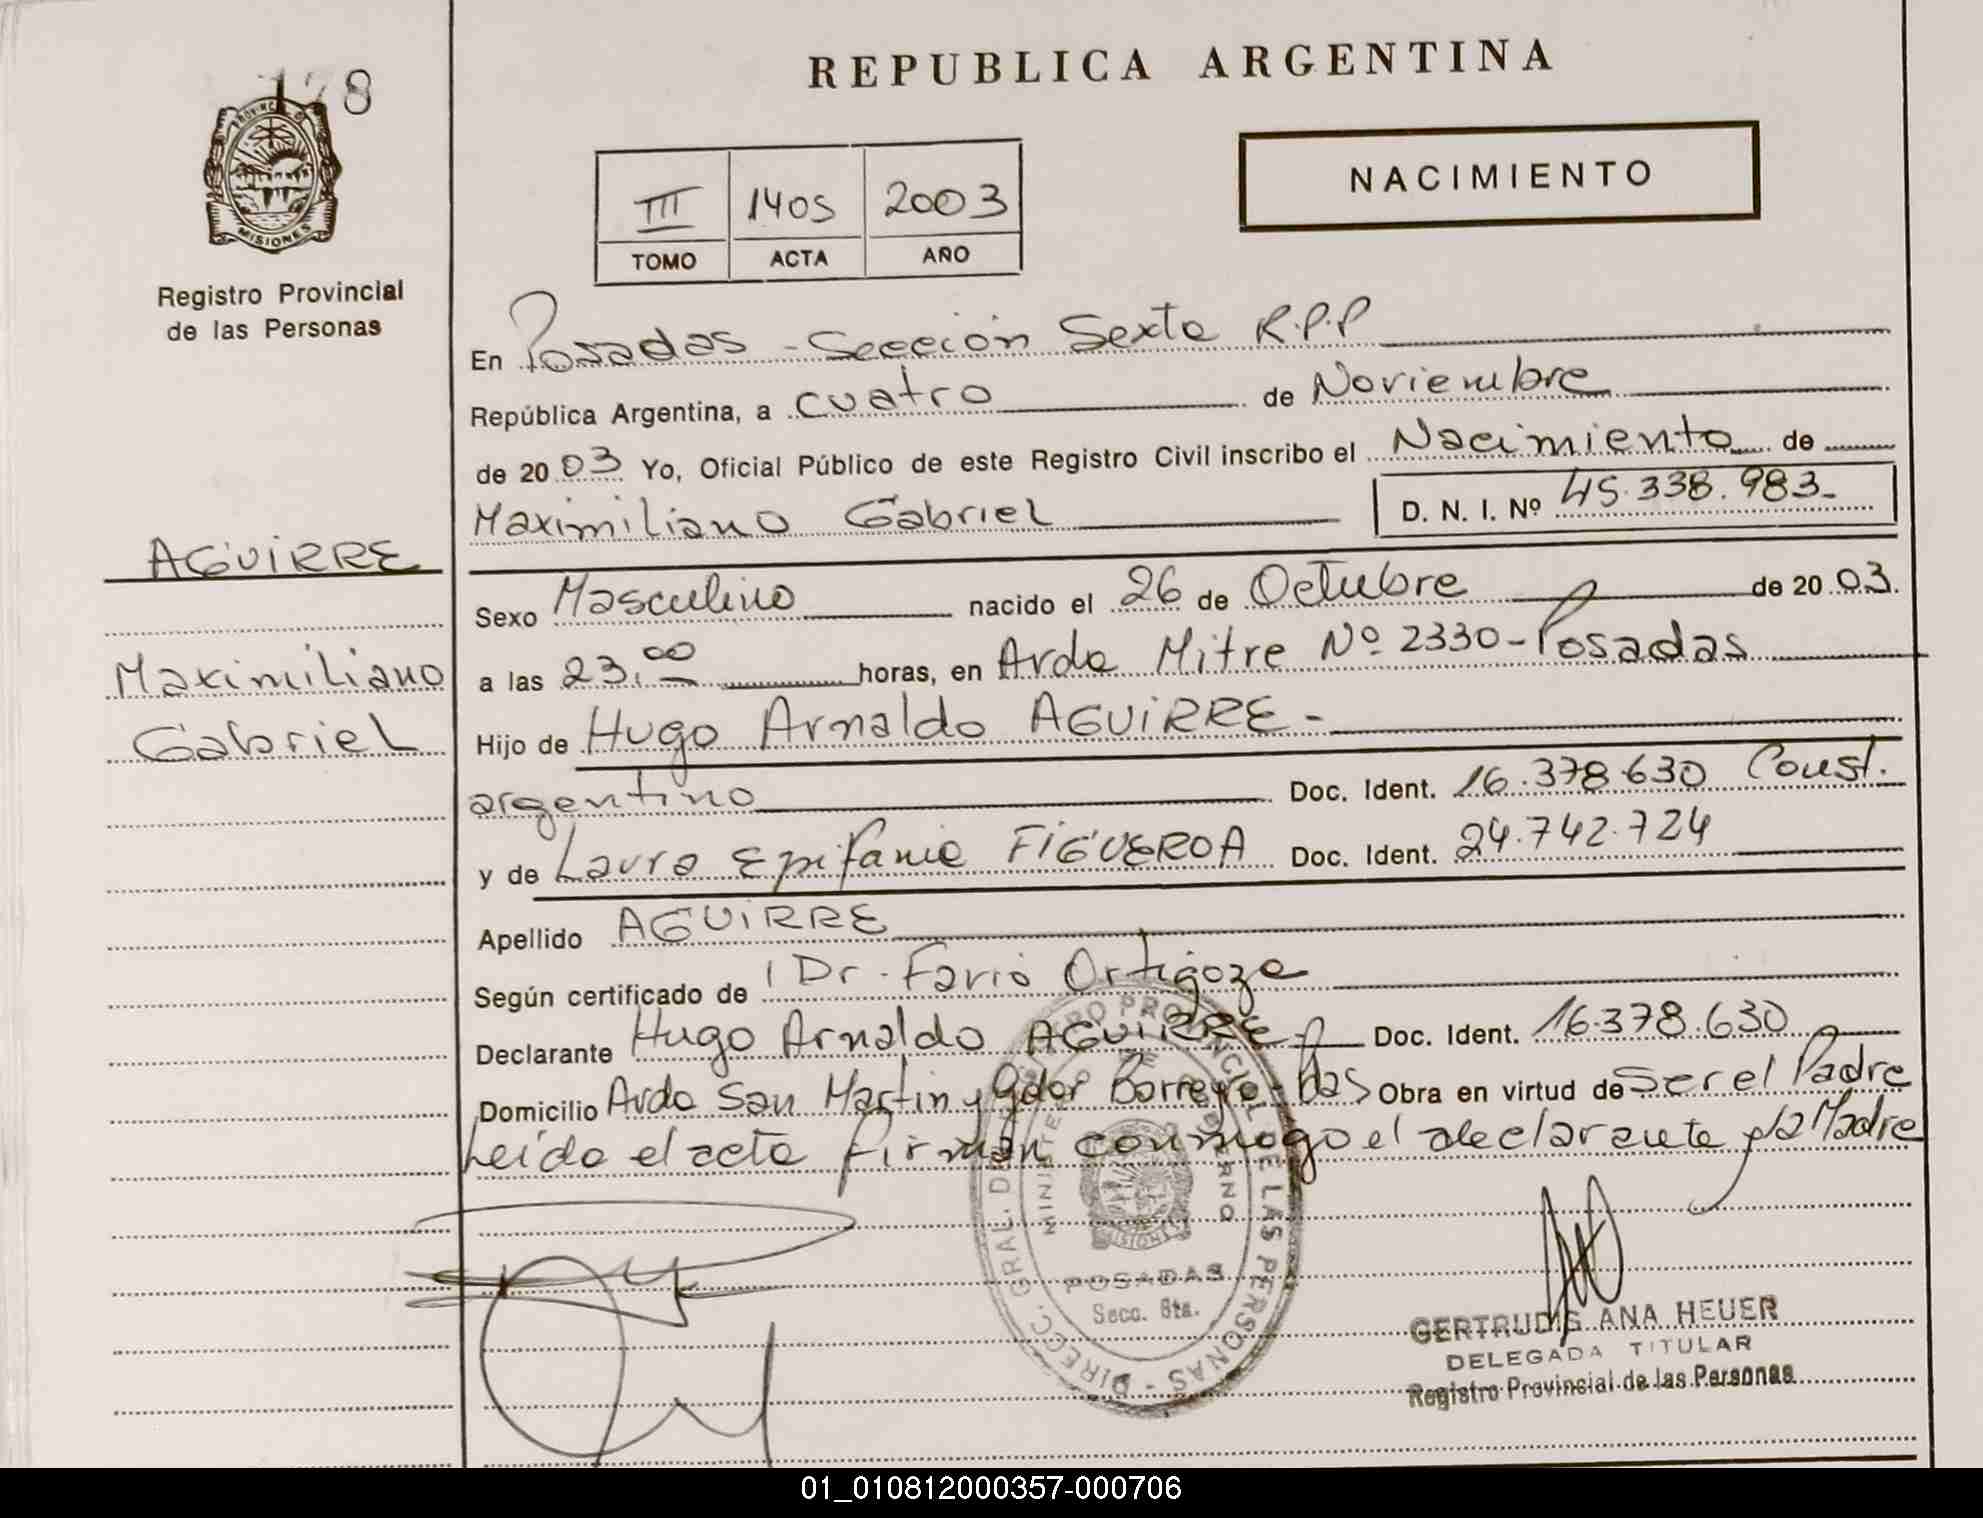 178
REPUBLICA ARGENTINA
NACIMIENTO
III 1405 2003
TOMO ACTA AÑO
PROVINCIA D
MISIONES
Registro Provincial
de las Personas
En Posadas - Sección Sexta R.P.P
República Argentina, a cuatro de Noviembre
de 2003 Yo, Oficial Público de este Registro Civil inscribo el Nacimiento de
Maximiliano Gabriel D. N. I. Nº 45.338.983-
AGUIRRE
Maximiliano
Gabriel
Sexo Masculino nacido el 26 de Octubre de 2003.
a las 23.00 horas, en Avda Mitre Nº 2330 - Posadas
Hijo de Hugo Arnaldo AGUIRRE -
argentino Doc. Ident. 16.378.630 Const.
y de Laura Epifania FIGUEROA Doc. Ident. 24.742.724
Apellido AGUIRRE
Según certificado de Dr. Favio Ortigoza
Declarante Hugo Arnaldo AGUIRRE Doc. Ident. 16.378.630
Domicilio Avda San Martin y Gdor Barreyro - Pdas Obra en virtud de Ser el Padre
Leída el acta firman conmigo el declarante y la Madre
DIREC. GRAL. DEL REGISTRO PROVINCIAL DE LAS PERSONAS
MINISTERIO DE GOBIERNO
MISIONES
POSADAS
Secc. 6ta.
GERTRUDIS ANA HEUER
DELEGADA TITULAR
Registro Provincial de las Personas
01_010812000357-000706